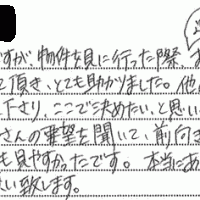 ですが、物件を見に行った際、お
て頂き、とても助かりました。他
下さり、ここで決めたい、と思い
さんの要望を聞いて、前向き
も見やすかったです。本当にあ
い致します。